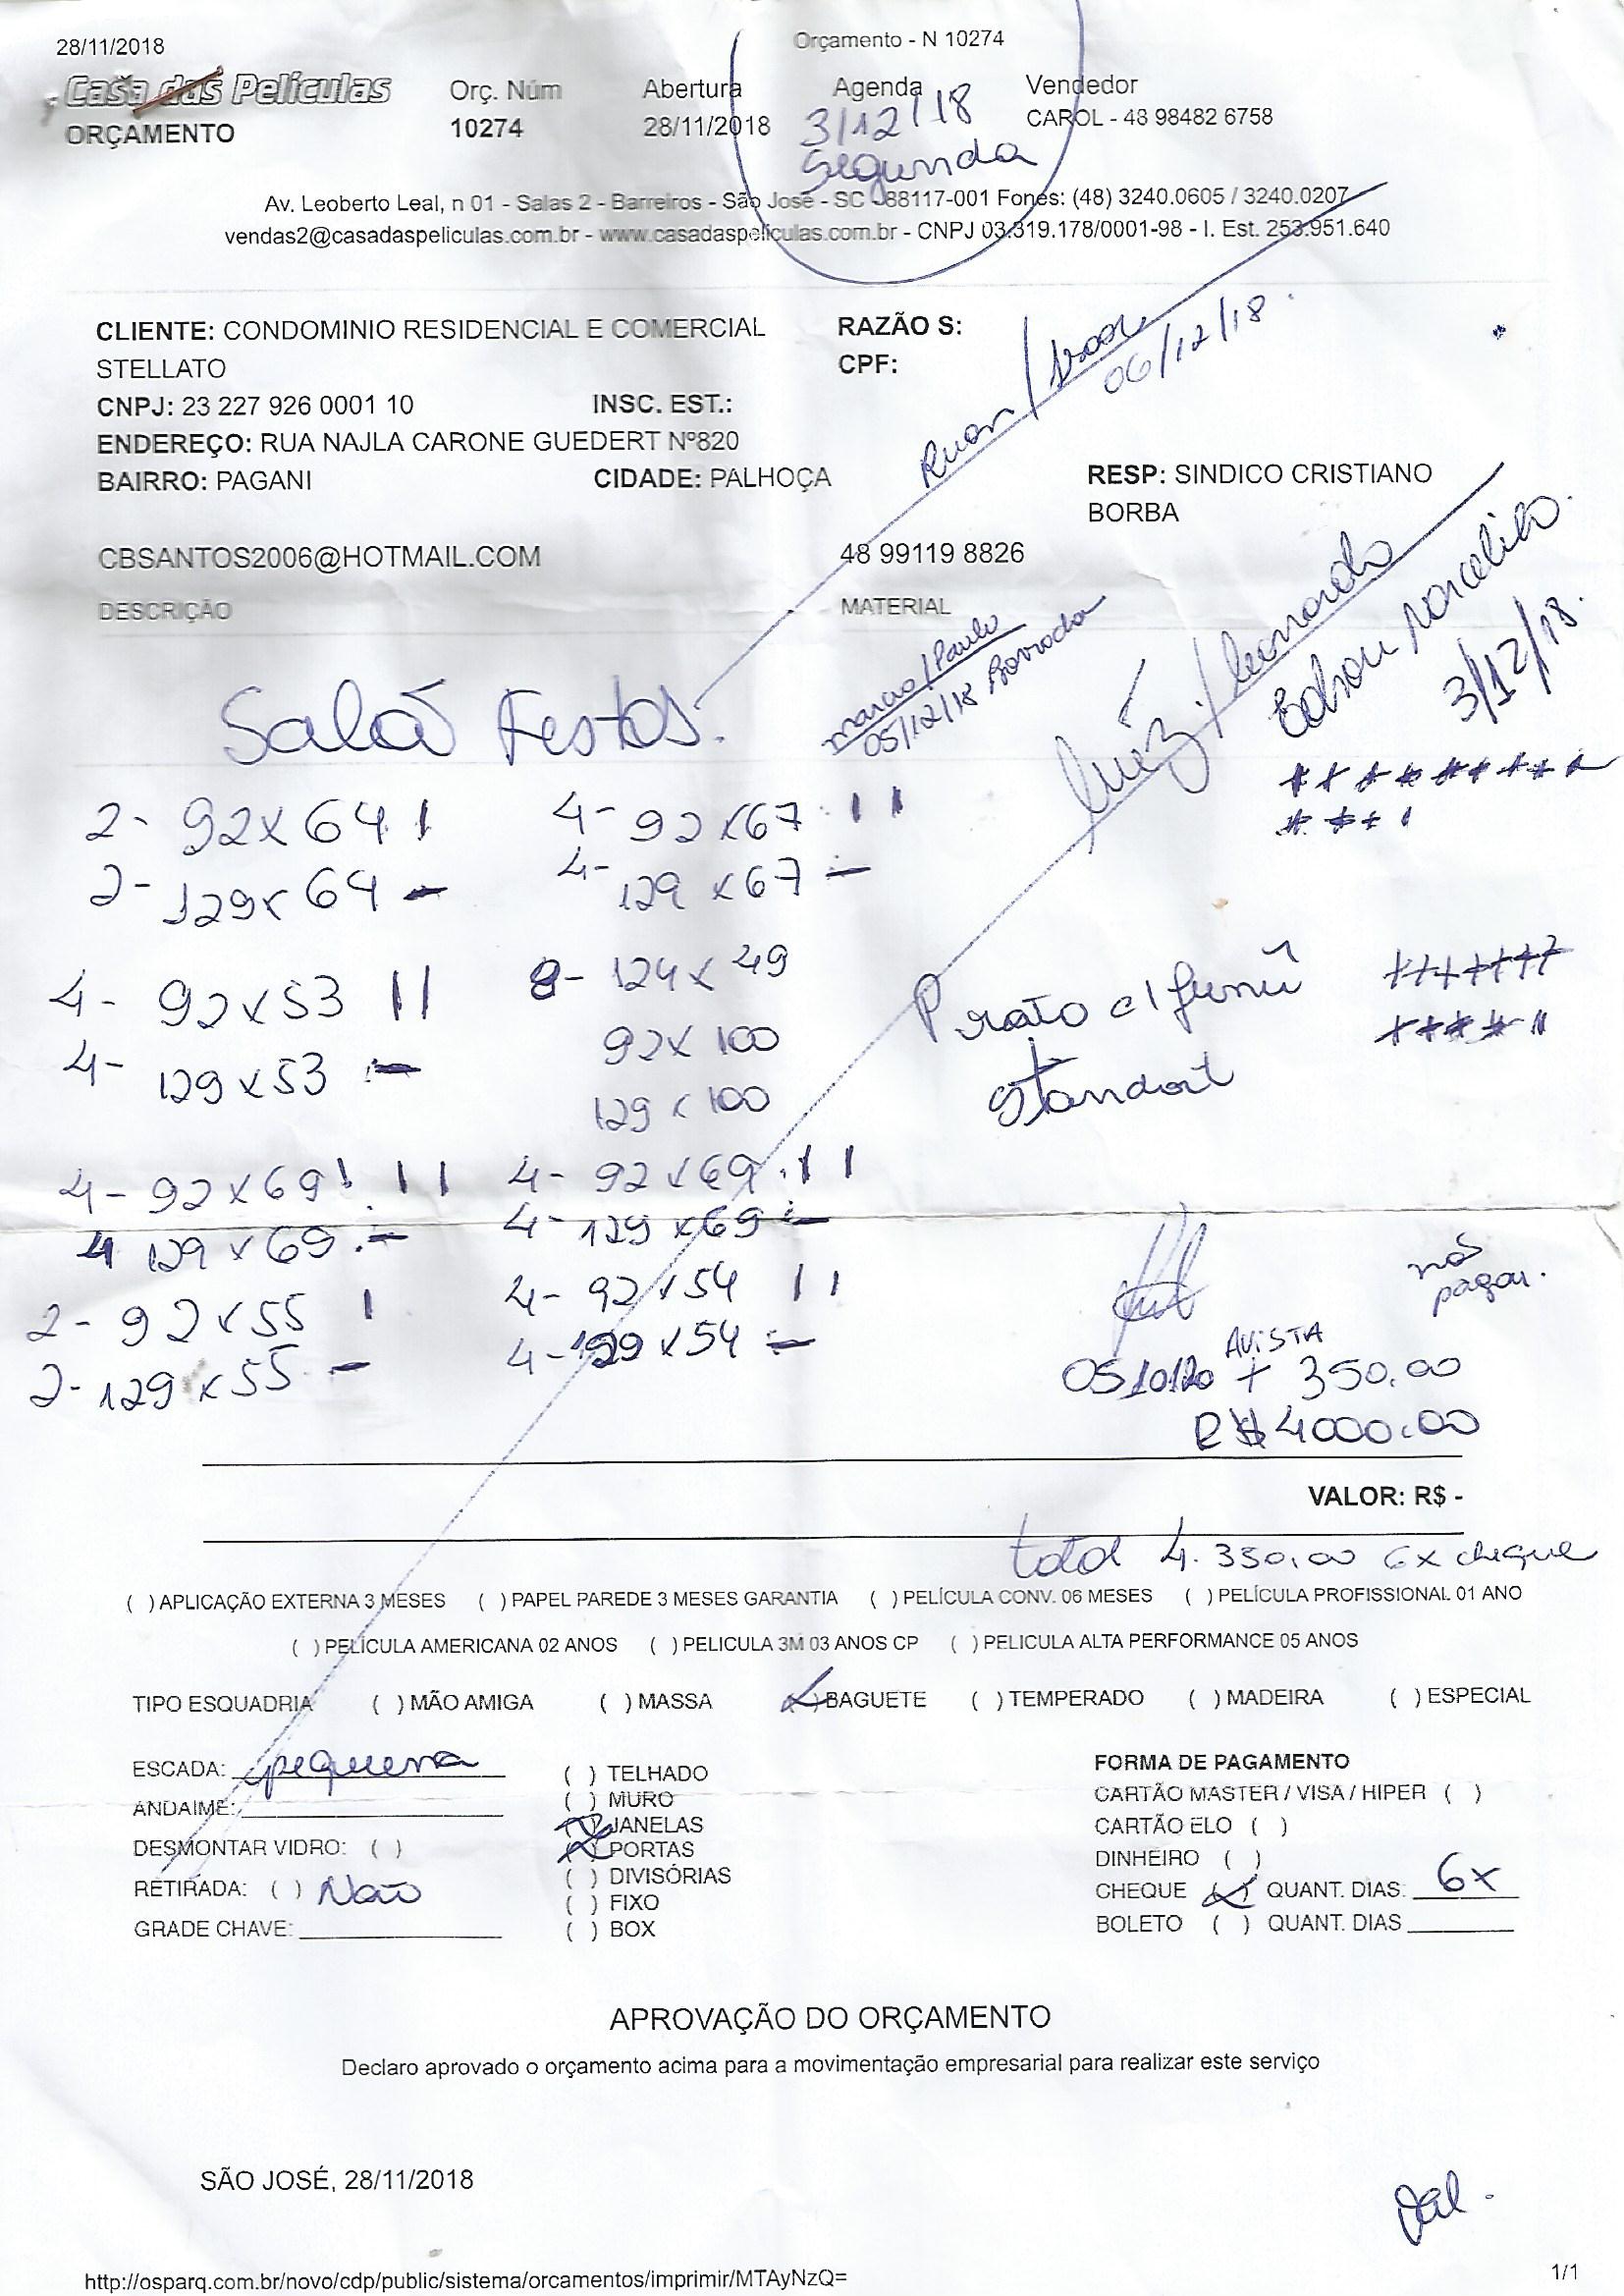 28/11/2018
Orçamento - N 10274
Casa das Películas
Orç. Núm
Abertura
Agenda
Vendedor
ORÇAMENTO
10274
28/11/2018
3/12/18
CAROL - 48 98482 6758
Segunda
Av. Leoberto Leal, n 01 - Salas 2 - Barreiros - São José - SC - 88117-001 Fones: (48) 3240.0605 / 3240.0207
vendas2@casadaspeliculas.com.br - www.casadaspeliculas.com.br - CNPJ 03.319.178/0001-98 - I. Est. 253.951.640
CLIENTE: CONDOMINIO RESIDENCIAL E COMERCIAL
STELLATO
RAZÃO S:
CPF:
06/12/18.
CNPJ: 23 227 926 0001 10
INSC. EST.:
ENDEREÇO: RUA NAJLA CARONE GUEDERT Nº820
BAIRRO: PAGANI
CIDADE: PALHOÇA
RESP: SINDICO CRISTIANO
BORBA
CBSANTOS2006@HOTMAIL.COM
48 99119 8826
DESCRIÇÃO
MATERIAL
Marcio/Paulo
05/12/18
Luíz/Leonardo
Edson
3/12/18.
Salão Festas.
2- 92x64
4- 92x67
2- 129x64 -
4- 129x67 -
4- 92x53
8- 124x49
4- 129x53 -
92x100
129x100
Prata c/ fumê
Standart
4- 92x69
4- 92x69
4 129x69 -
4- 129x69 -
2- 92x55
4- 92x54
2- 129x55 -
4- 129x54 -
não
pagou.
AVISTA
+ 350,00
R$ 4000,00
VALOR: R$ -
total 4.350,00 6x cheque
( ) APLICAÇÃO EXTERNA 3 MESES ( ) PAPEL PAREDE 3 MESES GARANTIA ( ) PELÍCULA CONV. 06 MESES ( ) PELÍCULA PROFISSIONAL 01 ANO
( ) PELÍCULA AMERICANA 02 ANOS ( ) PELICULA 3M 03 ANOS CP ( ) PELICULA ALTA PERFORMANCE 05 ANOS
TIPO ESQUADRIA ( ) MÃO AMIGA ( ) MASSA (x) BAGUETE ( ) TEMPERADO ( ) MADEIRA ( ) ESPECIAL
ESCADA: pequena
ANDAIME:
DESMONTAR VIDRO: ( )
RETIRADA: ( ) Não
GRADE CHAVE:
( ) TELHADO
( ) MURO
(x) JANELAS
(x) PORTAS
( ) DIVISÓRIAS
( ) FIXO
( ) BOX
FORMA DE PAGAMENTO
CARTÃO MASTER / VISA / HIPER ( )
CARTÃO ELO ( )
DINHEIRO ( )
CHEQUE (x) QUANT. DIAS: 6x
BOLETO ( ) QUANT. DIAS
APROVAÇÃO DO ORÇAMENTO
Declaro aprovado o orçamento acima para a movimentação empresarial para realizar este serviço
SÃO JOSÉ, 28/11/2018
http://osparq.com.br/novo/cdp/public/sistema/orcamentos/imprimir/MTAyNzQ=
1/1